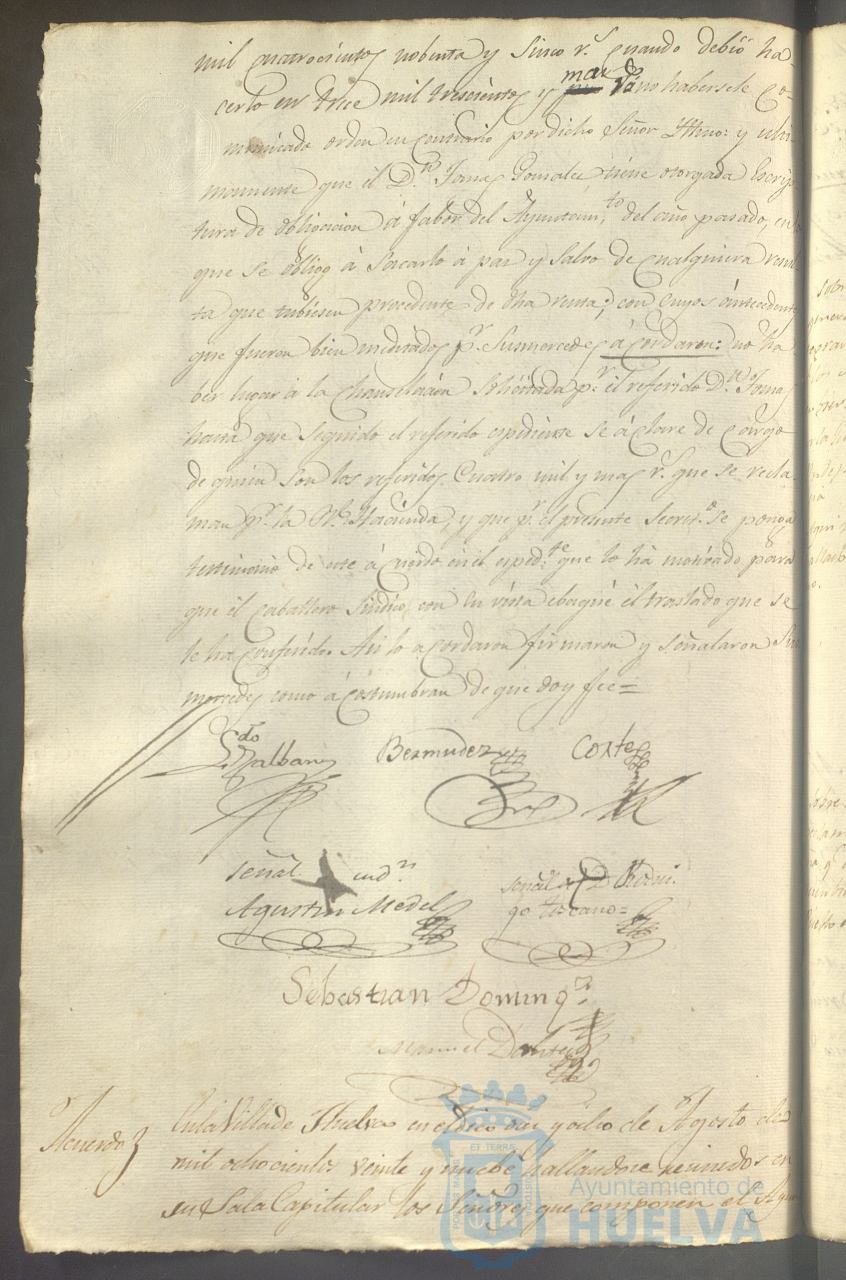 mil cuatrocientos nobenta y sinco r.s cuando debió ha-
cerlo en trece mil trescientos y mar no habersele co-
municado orden en contrario por dicho Señor Yltmo: y ulti-
mamente que el D.n Tomas Gonzalez tiene otorgada Escrip-
tura de obligacion á fabor del Ayuntam.to del año pasado, en la
que se obligó á sacarlo á paz y salvo de cualquiera resul-
ta que tubiesen procedente de dha renta; con cuyos antecedentes
que fueron bien meditados p.r Susmercedes á cordaron: no ha
ber lugar á la Chanselacion solicitada p.r el referido D.n Tomas
hasta que seguido el referido espediente se á clare de cargo
de quien son los referidos Cuatro mil y mas r.s que se recla-
man p.r la R.l Hacienda, y que p.r el presente Secret.o se ponga
testimonio de este á cuerdo en el esped.te que lo há motivado para
que el caballero Sindico, con su vista ebaqúe el traslado que se
le ha conferido. Asi lo acordaron firmaron y señalaron Sus
mercedes como á costumbran de que doy fee=
L.do Zalban Bermudez Cortes
señal ind.n
Agustin Medel
señal de D Rodri-
go Toscano=
Sebastian Doming.z
Manuel
Acuerdo
En la Villa de Huelva en el dia diez y ocho de Agosto de
mil ochocientos veinte y nuebe hallandose reunidos en
su Sala Capitular los Señores que componen el Ayun
PORTUS MARIS ET TERRAE CUSTODIA
Ayuntamiento de
HUELVA